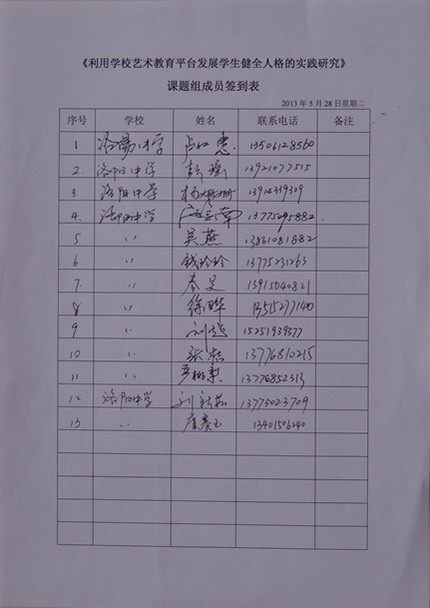 《利用学校艺术教育平台发展学生健全人格的实践研究》
课题组成员签到表
2013年5月28日星期二
序号 学校 姓名 联系电话 备注
1 洛阳中学 13506128560
2. 洛阳中学 彭瑜 13921077515
3 洛阳中学 杨珊珊 13914339309
4. 洛阳中学 13775295882
5 〃 吴燕 13861081882
6 〃 钱玲玲 13775231263
7. 〃 秦旻 13915040821
8 〃 徐晔 13515297140
9 〃 15251939577
10 〃 张 13776810215
11 〃 13776852313
12 洛阳中学 刘 13775023709
13 〃 13401506240